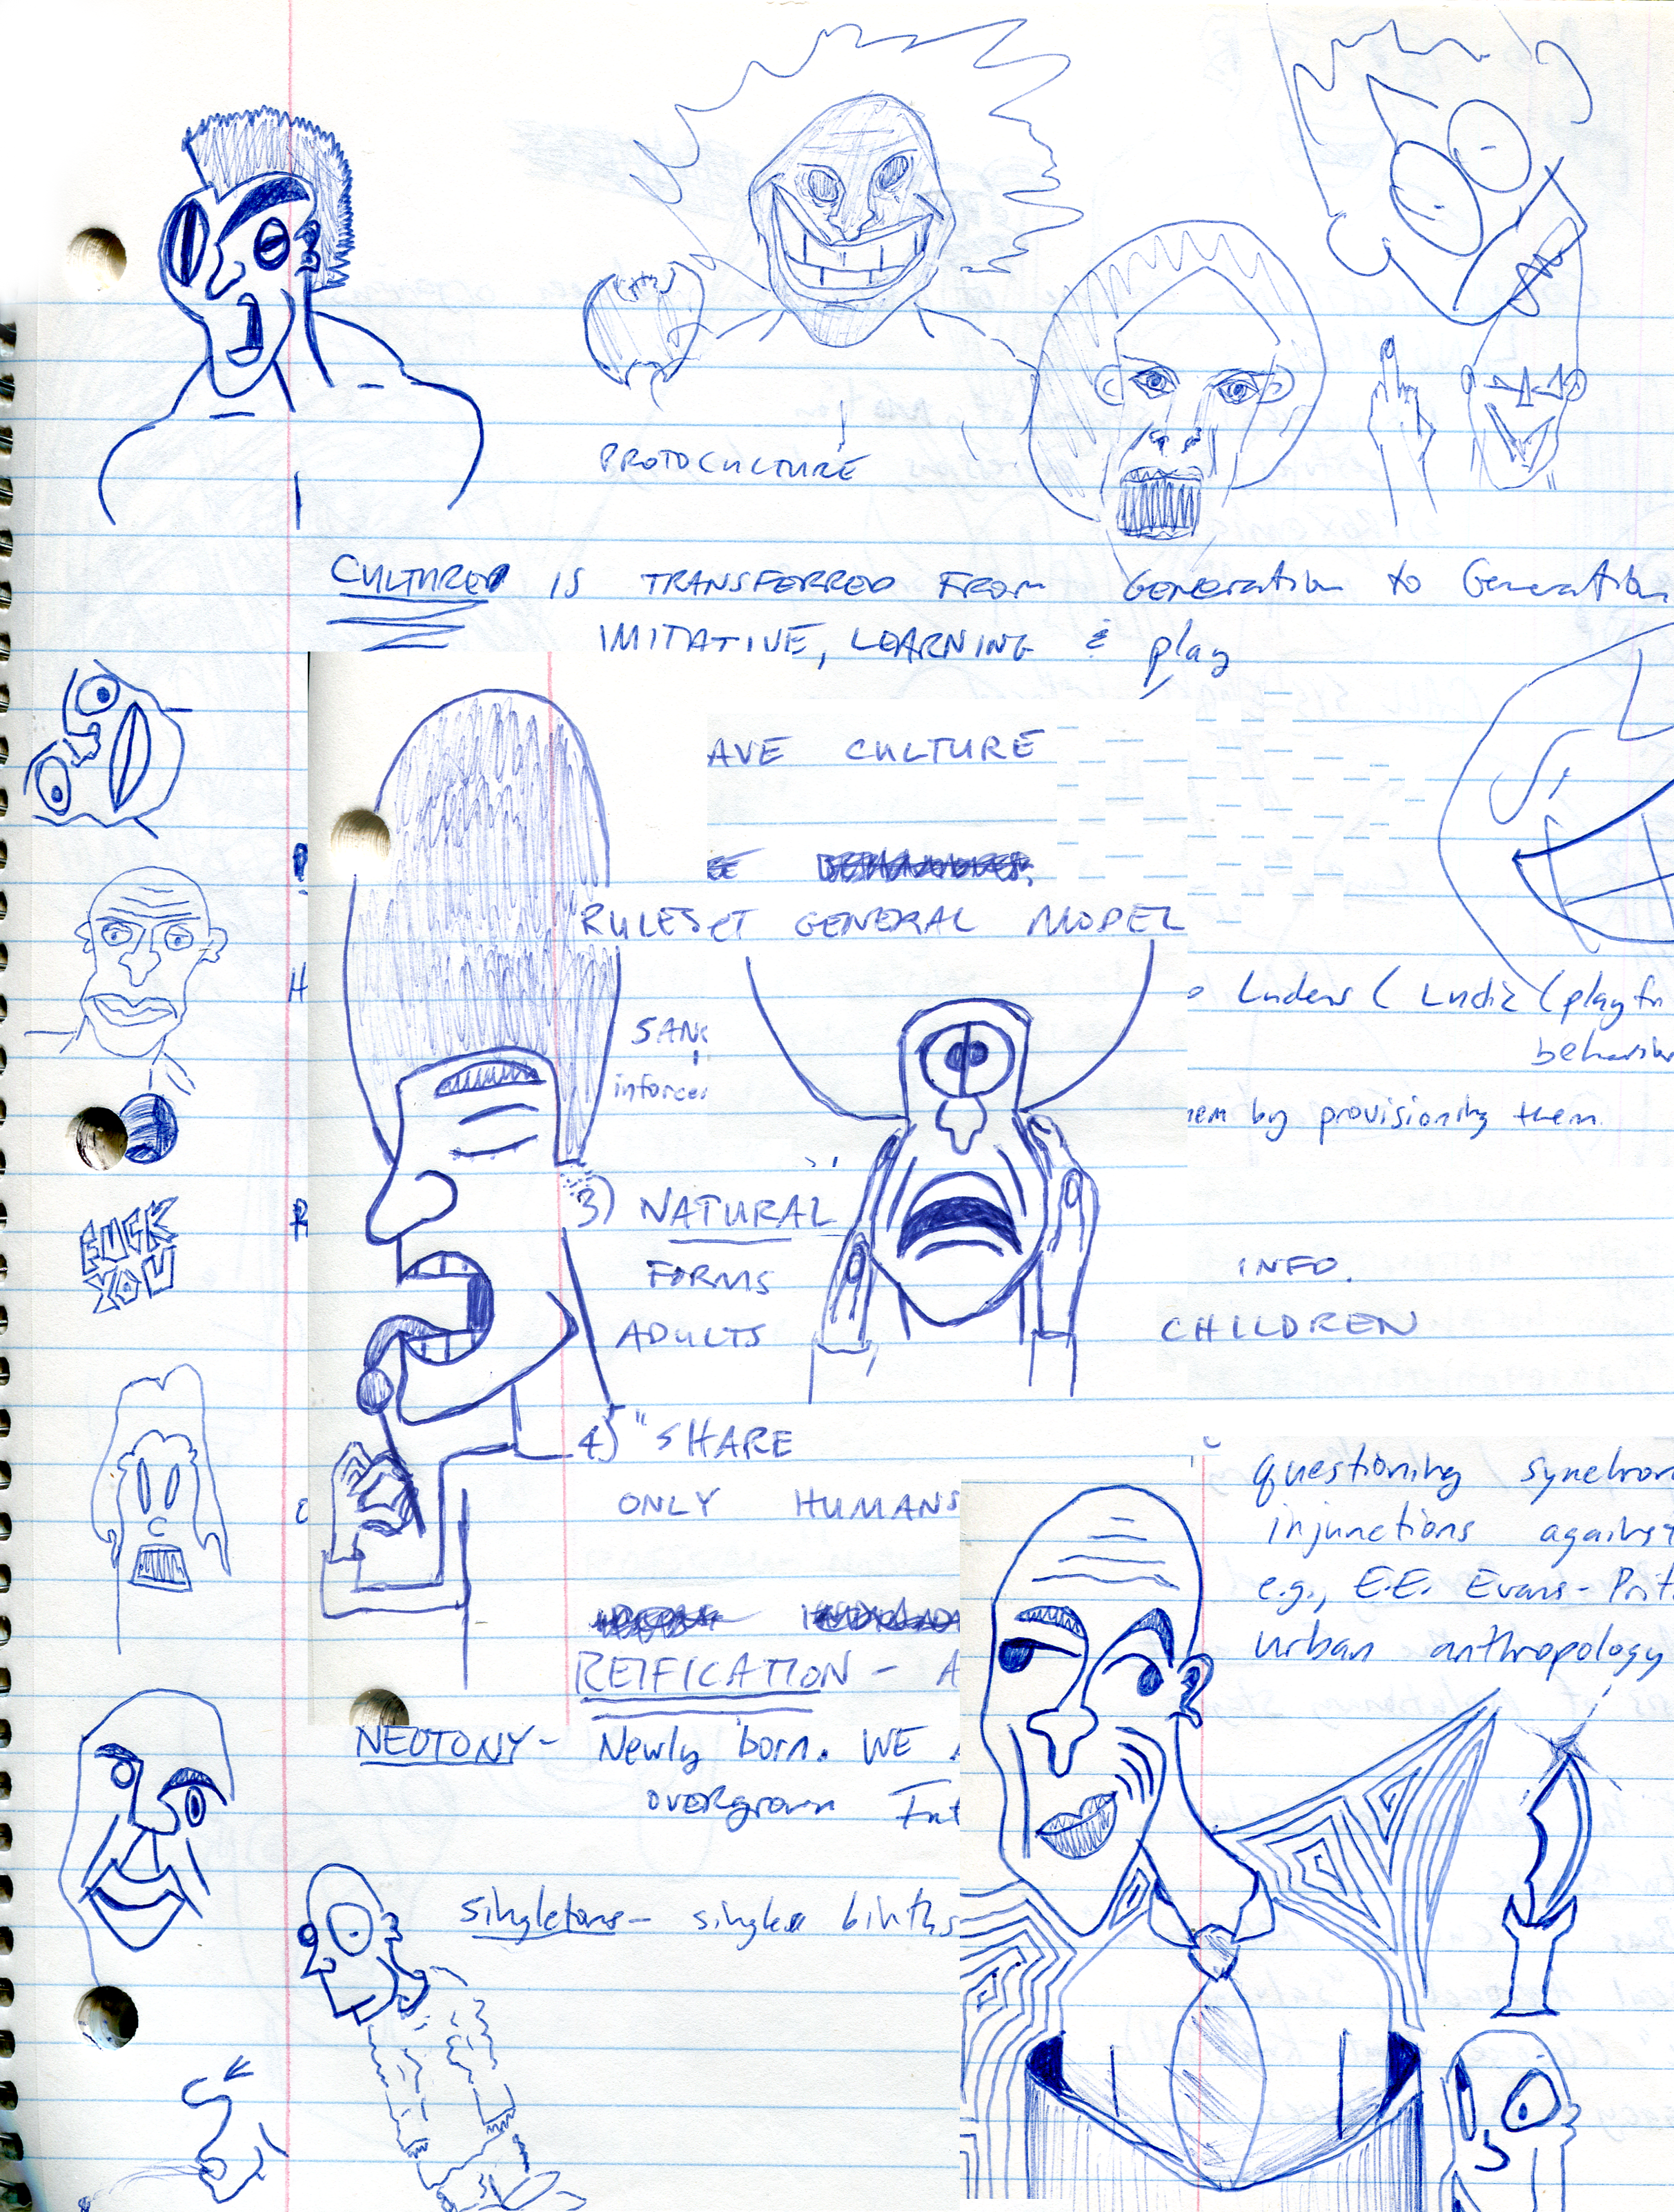 PROTOCULTURE
CULTURE IS TRANSFERRED FROM Generation to Generation
IMITATIVE, LEARNING & play
AVE CULTURE
RULESET GENERAL MODEL
Ludens ( Ludic (playfu
behavior
SANC
inforces
hem by provisioning them.
FUCK
YOU
3) NATURAL
FORMS INFO.
ADULTS CHILDREN
4) "SHARE
ONLY HUMANS
questioning synchron
injunctions against
e.g., E.E. Evans-Prit
urban anthropology
REIFICATION - A
NEOTONY - Newly born. WE
overgrown
singletons - single births